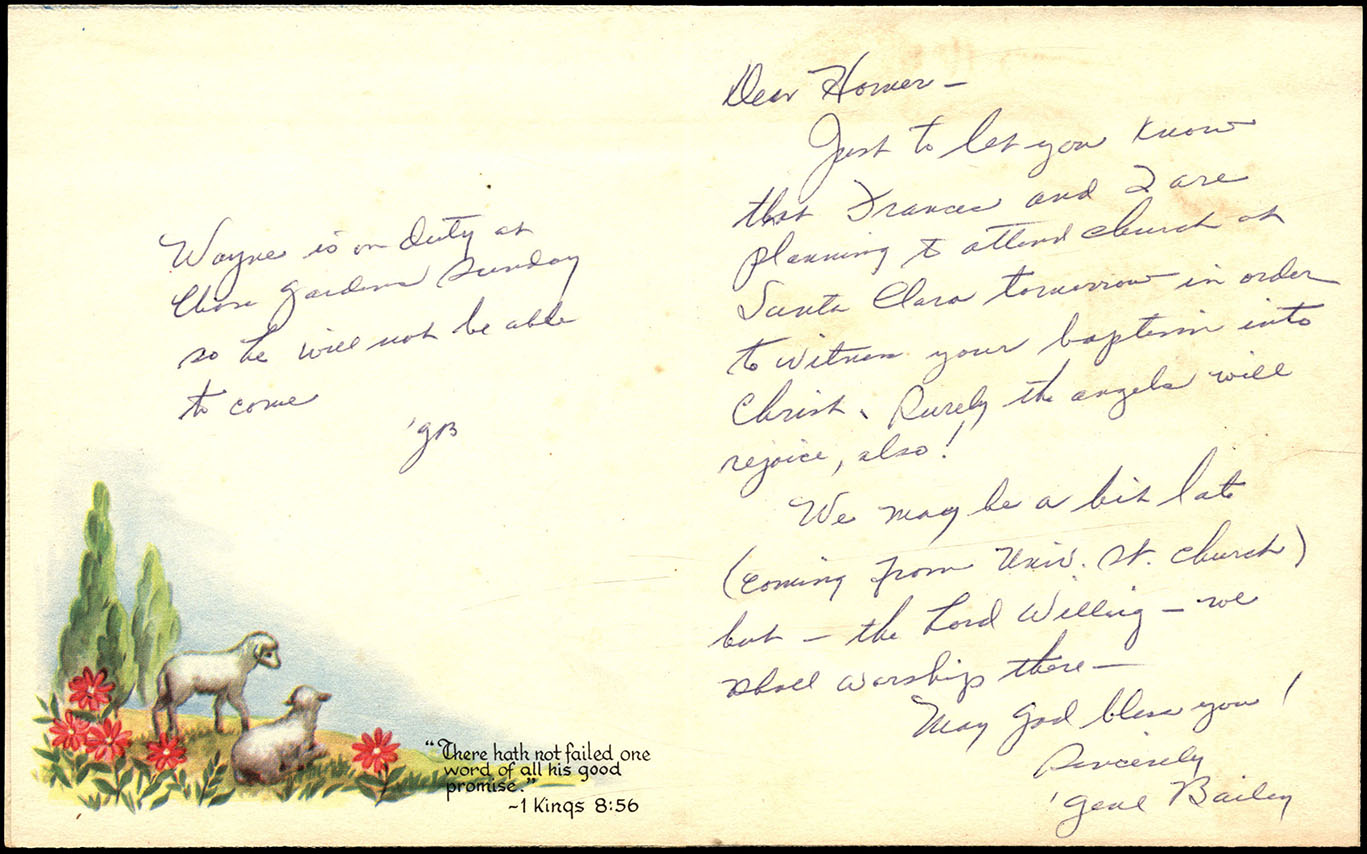 Wayne is on duty at
Chase Gardens Sunday
so he will not be able
to come
'GB
"There hath not failed one
word of all his good
promise."
~1 Kings 8:56
Dear Homer –
Just to let you know
that Frances and I are
planning to attend church at
Santa Clara tomorrow in order
to witness your baptism into
Christ. Surely the angels will
rejoice, also!
We may be a bit late
(coming from Univ. St. church)
but – the Lord Willing – we
shall worship there –
May God bless you!
Sincerely
'Gene Bailey